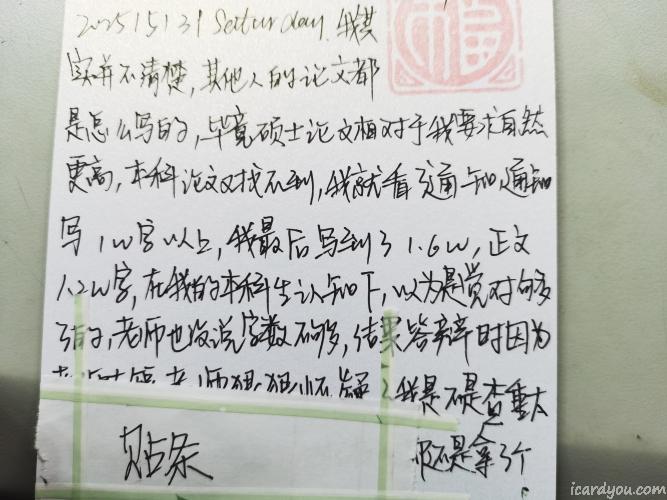 2025 15 131 Satturday. 我其
实并不清楚,其他人的论文都
是怎么写的,毕竟硕士论文相对于我要求自然
更高,本科论文又找不到,我就看了通知,通知
写1w字以上,我最后写到了1.6w,正文
1.2w字,在我的本科生认知下,以为是觉对够多
了的,老师也没说字数不够多,结果答辩时因为
老师狠狠怀疑
我是不是查重太
是不是拿了个
贴条
福
icardyou.com